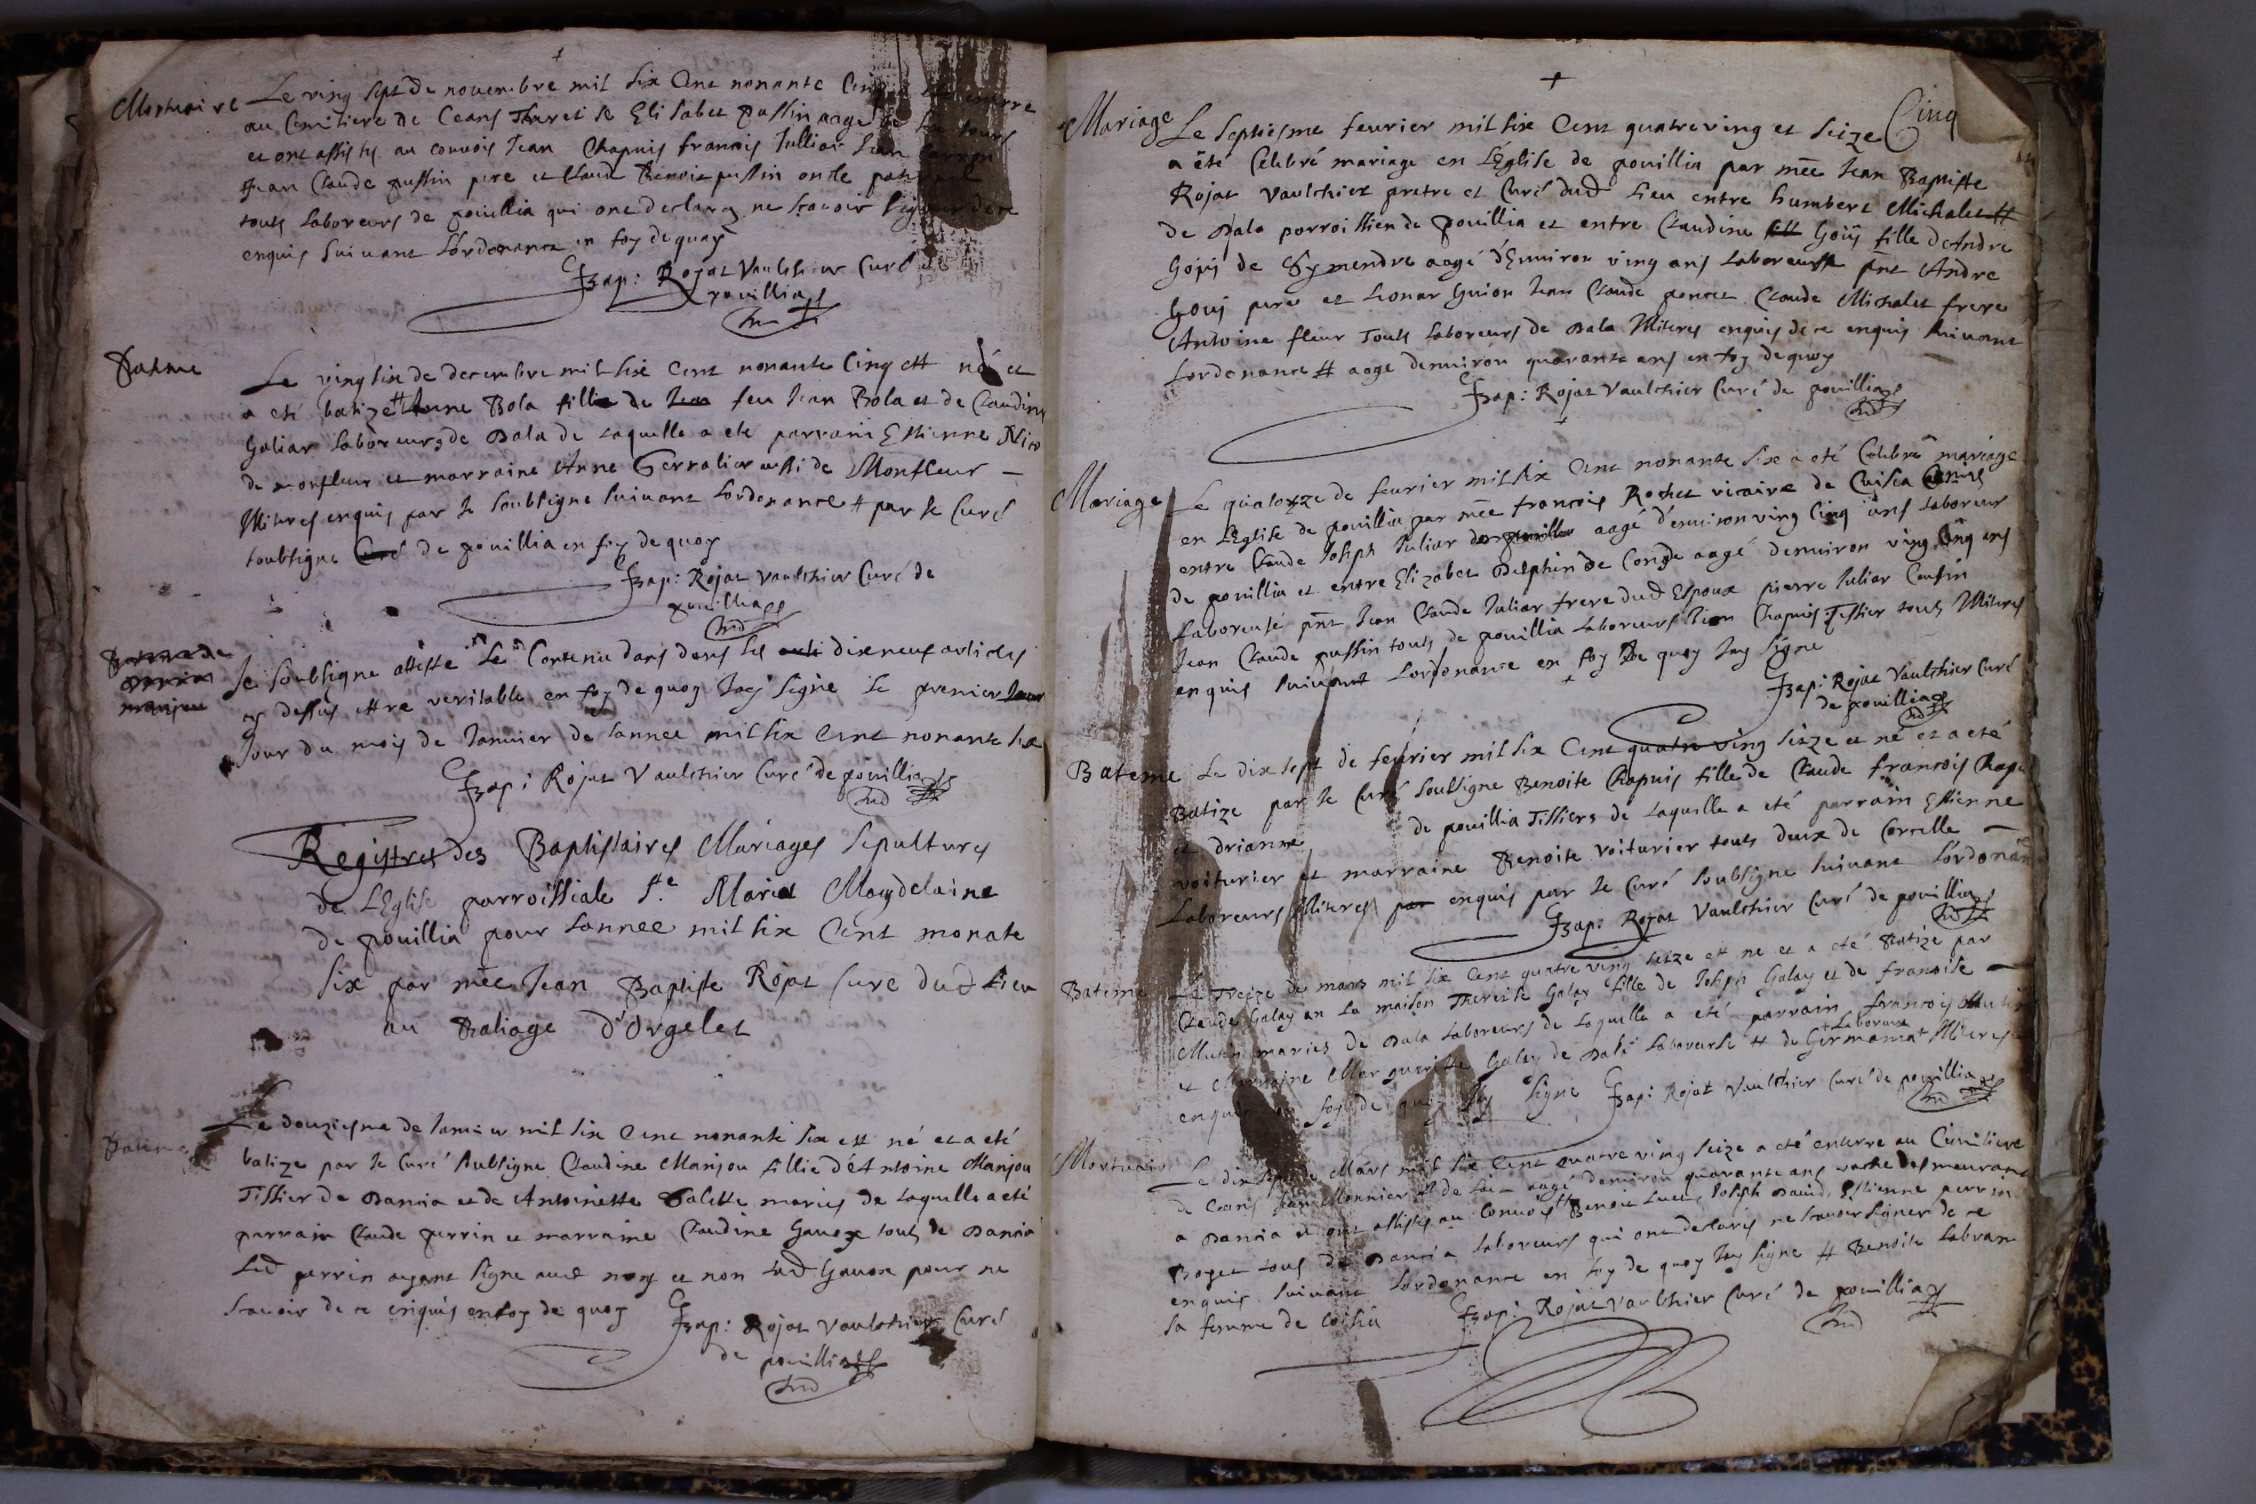 Mortuaire
Le ving sept de novembre mil six cent nonante cinq enterre
au Cimitiere de Ceans Therese Elisabet pussin aage
et ont assistes au convois Jean Chapuis francois Julliar Jean
Jean Claude pussin pere et Claud Benoit pussin oncle paternel
touts laboreurs de pouillia qui ont declarez ne scavoir signer de ce
enquis suivant l'ordonance en foy de quoy
Bap: Rojat Vaulchier Curé de
pouillia
Batme
Le ving six de decembre mil six cent nonante cinq est né et
a eté batizé # Anne Bola fillie de Jean feu Jean Bola et de Claudine
Galiar laboreurs de Dala de laquelle a ete parrain Estienne Nico
de monfleur et marraine Anne Terralier aussi de Monfleur
illiteres enquis par le soubsigne suivant lordonance # par le Curé
soubsigne Curé de pouillia en foy de quoy
Bap: Rojat Vaulchier Curé de
pouillia
Je soubsigne atteste le contenu dans dans les dixneuf articles
cy dessus ettre veritable en foy de quoy Jay signé le premier Jour
Jour du mois de Janvier de lannee mil six cent nonante six
Bap: Rojat Vaulchier Curé de pouillia
Registres des Baptistaires Mariages Sepultures
de LEglise parroissiale Ste Maria Magdelaine
de pouillia pour lannee mil six cent monate
six par mre Jean Baptiste Rojat Cure dud lieu
au Baliage d'Orgelet
Bateme
Le douziesme de Janvier mil six cent nonante six est né et a eté
batize par le Curé soubsigne Claudine Manjou fillie d'Antoine Manjou
Tissier de Dancia et de Antoinette Salette maries de laquelle a eté
parrain Claude perrin et marraine Claudine Gavox touts de Dancia
Led perrin ayant signe avec nous et non lad Gavox pour ne
scavoir de ce enquis en foy de quoy
Bap: Rojat Vaulchier Curé
de pouillia
Cinq
Mariage
Le septiesme fevrier mil six cent quatre ving et seize
a été Celebré mariage en LÉglise de pouillia par mre Jean Baptiste
Rojat Vaulchier pretre et Curé dud lieu entre humbert Michalet #
de Dala parroissien de pouillia et entre Claudine Goÿ fille d'Andre
Goÿ de Symendre aagé d'Environ ving ans laboreurs pnt Andre
Goÿ pere et Leonar Guion Jean Claude poncet Claude Michalet frere
Antoine fleur Touts laboreurs de Dala illiteres enquis de ce enquis suivant
Lordonance # aage denviron quarante ans en foy dequoy
Bap: Rojat Vaulchier Curé de pouillia
Mariage
Le quatorze de fevrier mil six cent nonante six a eté Celebré mariage
en LÉglise de pouillia par mre francois Rochet vicaire de Cuisia
entre Claude Joseph Juliar aagé d'environ ving cinq ans laboreur
de pouillia et entre Elizabet Delphin de Conde aagé denviron ving cinq ans
Laboreuse pnt Jean Claude Juliar frere dud Espoux pierre Juliar Cousin
Jean Claude pussin touts de pouillia Laboreurs Jean Chapuis Tissier touts illiteres
enquis suivant Lordonance en foy de quoy Jay signé
Bap: Rojat Vaulchier Curé
de pouillia
Bateme
Le dix sept de fevrier mil six cent quatre ving seize et né et a eté
Batize par le Curé soubsigne Benoite Chapuis fille de Claude francois Chapuis
et drianne de pouillia Tissiers de laquelle a eté parrain Estienne
voiturier et marraine Benoite voiturier touts deux de Corcelle
Laboreurs illiteres par enquis par le Curé soubsigne suivant Lordonan
Bap: Rojat Vaulchier Curé de pouillia
Bateme
Le Treize de mars mil six cent quatre ving seize est ne et a eté Batize par
Claude Galay en la maison Therese Galay fille de Joseph Galay et de francoise
Mutin maries de Dala Laboreurs de laquelle a eté parrain francois Mutin
et Marraine Marguerite Galay de Dala Laboreuse # de Germania + Laboreur + illiteres
enquis en foy de quoy Jay signe Bap: Rojat Vaulchier Curé de pouillia
Mortuair
Le dix sept de Mars mil six cent quatre ving seize a eté enterre au Cimitiere
de Ceans Jean Monnier aagé denviron quarante ans demeurant
a Dancia et ont assistes au Convois # Benoit Joseph David Estienne perrin
Boget tous de Dancia laboreurs qui ont declarés ne scavoir signer de ce
enquis suivant Lordonance en foy de quoy Jay signe # Benoite
sa femme de
Bap: Rojat Vaulchier Curé de pouillia